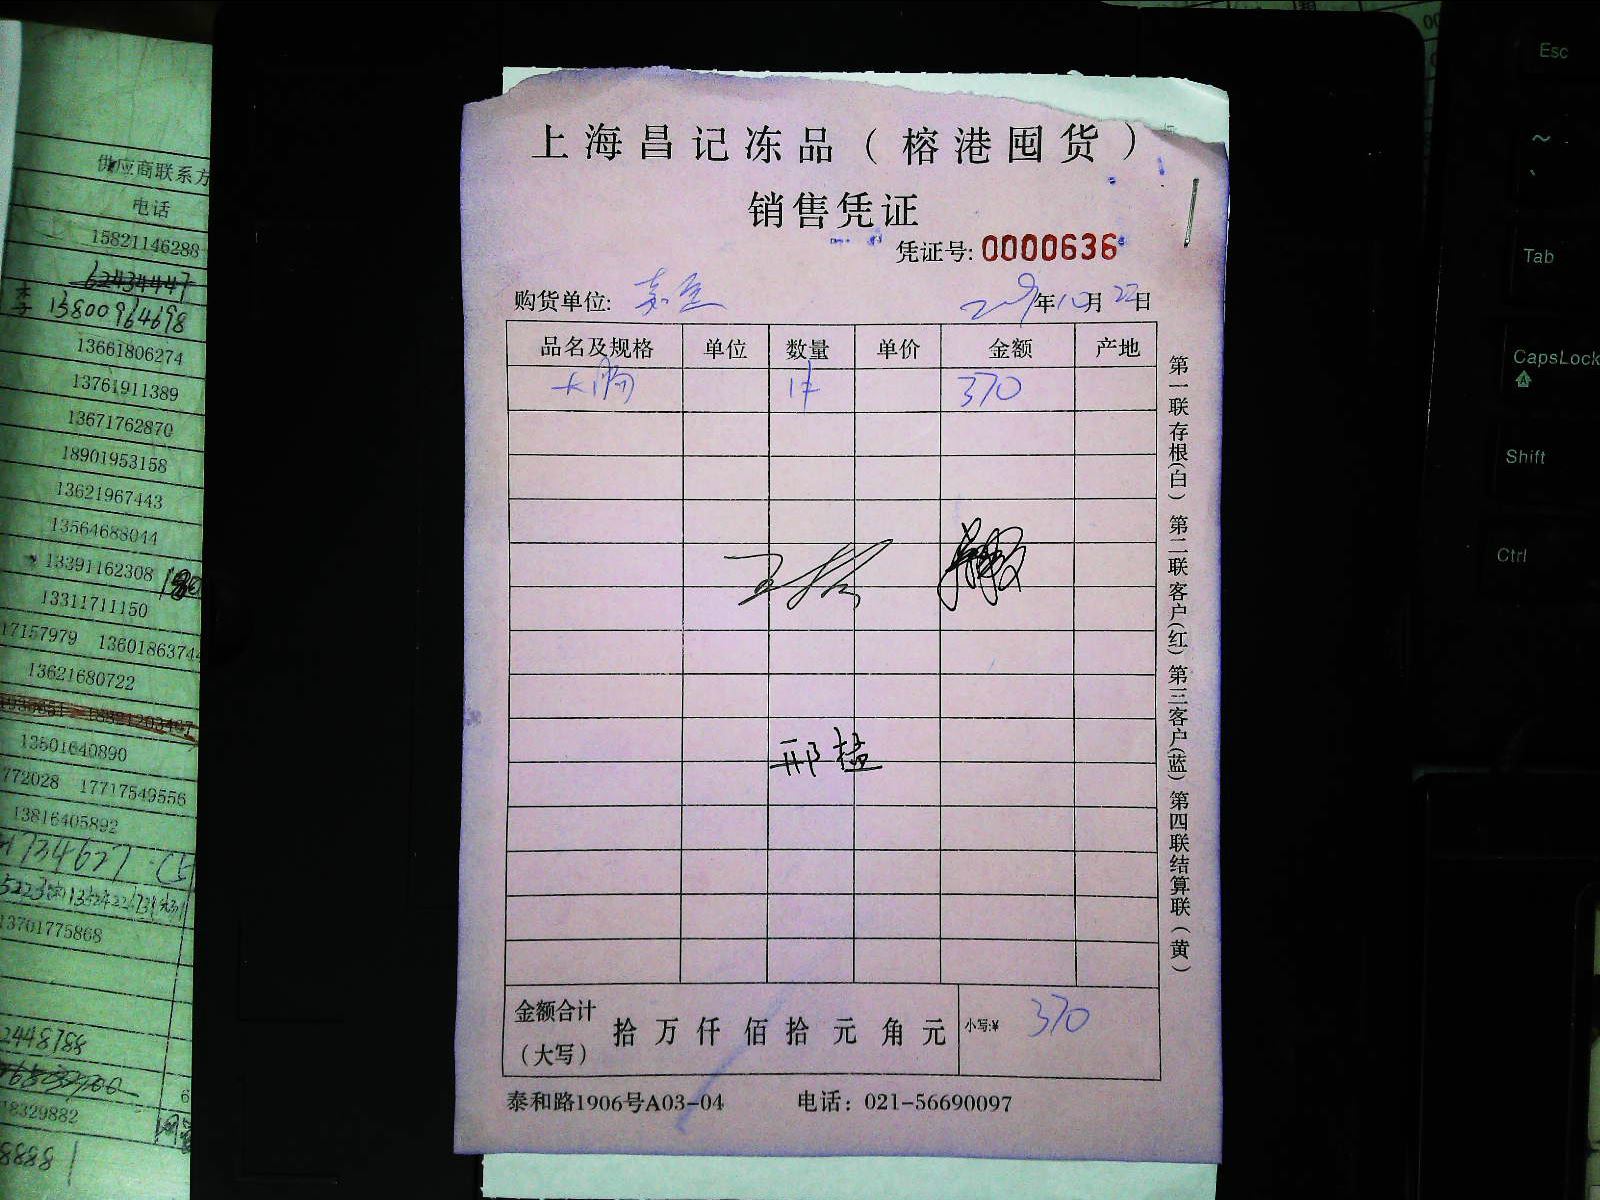 上海昌记冻品（榕港囤货）
销售凭证
凭证号:0000636
购货单位:
年10月22日
品名及规格 单位 数量 单价 金额 产地
大肠 1件 370
邢猛
金额合计（大写） 拾 万 仟 佰 拾 元 角 元 小写:¥ 370
泰和路1906号A03-04 电话：021-56690097
第一联存根(白) 第二联客户(红) 第三客户(蓝) 第四联结算联(黄)
供应商联系方
电话
15821146288
62434447
李 13800964698
13661806274
13761911389
13671762870
18901953158
13621967443
13564688044
13391162308
13311711150
17157979 13601863744
13621680722
13501640890
772028 17717549556
13816405892
1734627
13701775868
2448788
18329882
8888
Esc
~
Tab
CapsLock
Shift
Ctrl